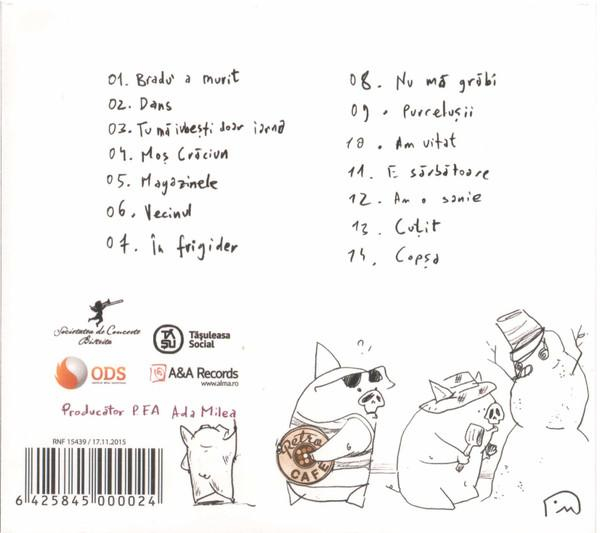 01. Bradu' a murit
02. Dans
03. Tu mă iubești doar iarna
04. Moș Crăciun
05. Magazinele
06. Vecinul
07. În frigider
08. Nu mă grăbi
09. Purcelușii
10. Am uitat
11. E sărbătoare
12. Am o sanie
13. Cuțit
14. Copșa
Societatea de Concerte
Bistrița
TĂ
ȘU
Tășuleasa
Social
ODS
A&A Records
www.alma.ro
Producător P.F.A Ada Milea
RNF 15439 / 17.11.2015
6 425845 000024
Retro
CAFE
?